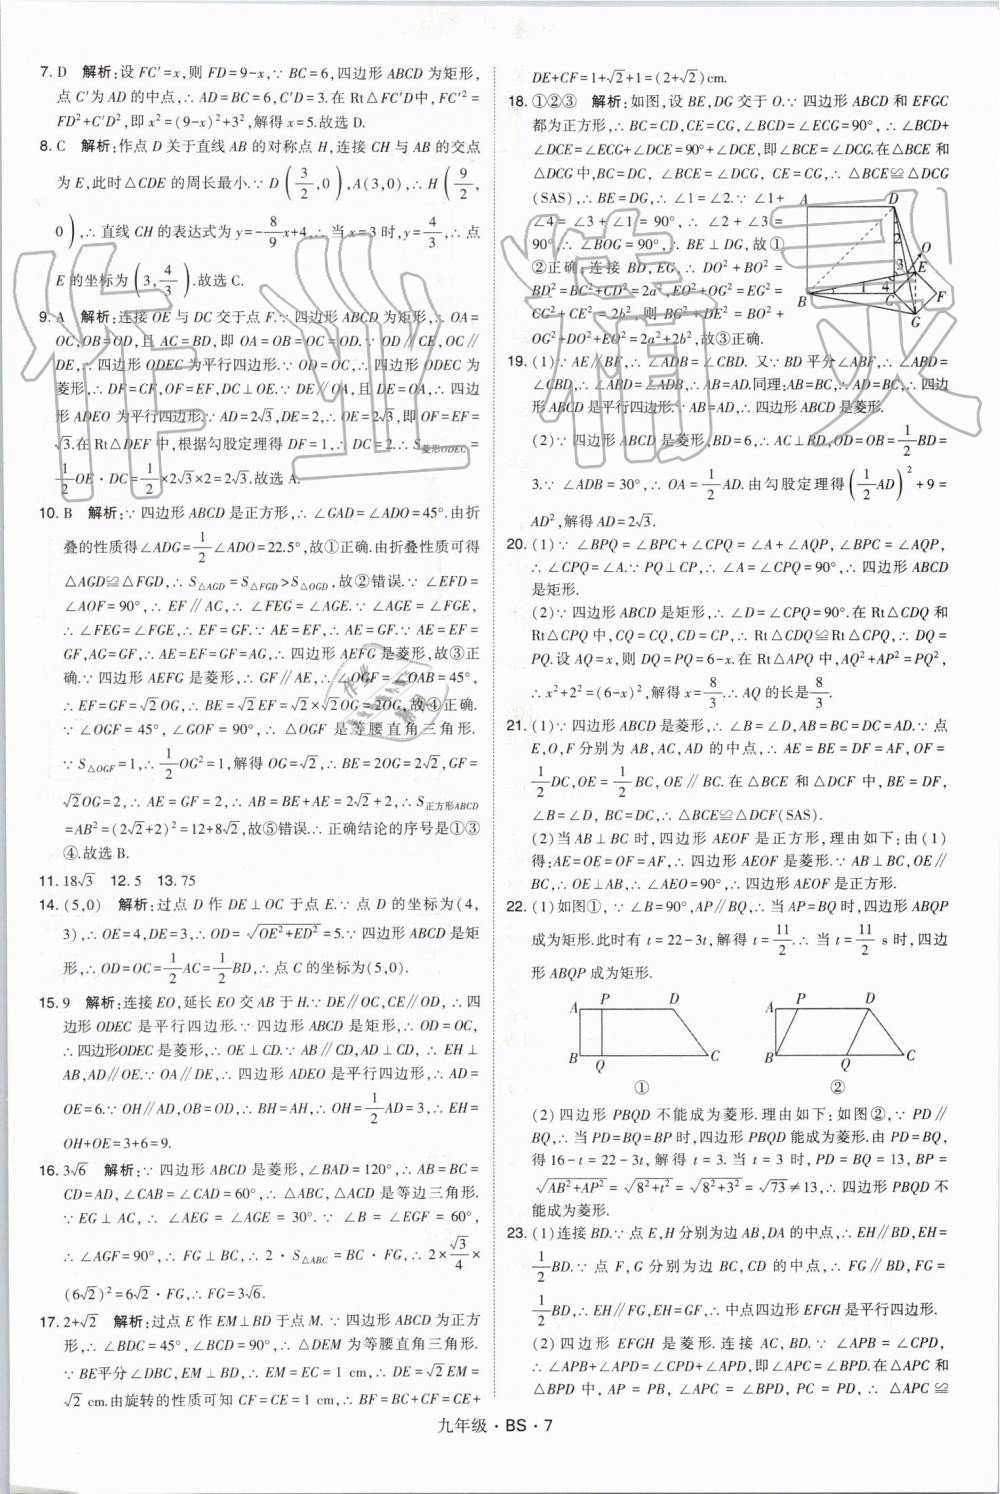 7. D　解析:设 FC′=x,则 FD=9-x,∵ BC=6,四边形 ABCD 为矩形,
点 C′为 AD 的中点,∴ AD=BC=6,C′D=3.在 Rt△FC′D中,FC′²=
FD²+C′D²,即 x²=(9-x)²+3²,解得 x=5.故选 D.
8. C　解析:作点 D 关于直线 AB 的对称点 H,连接 CH 与 AB 的交点
为 E,此时△CDE 的周长最小.∵ D(3/2,0),A(3,0),∴ H(9/2,
0),∴ 直线 CH 的表达式为 y=-8/9x+4,∴ 当 x=3 时,y=4/3,∴ 点
E 的坐标为(3,4/3).故选 C.
9. A　解析:连接 OE 与 DC 交于点 F.∵ 四边形 ABCD 为矩形,∴ OA=
OC,OB=OD,且 AC=BD,即 OA=OB=OC=OD.∵ OD∥CE,OC∥
DE,∴ 四边形 ODEC 为平行四边形.∵ OD=OC,∴ 四边形 ODEC 为
菱形,∴ DF=CF,OF=EF,DC⊥OE.∵ DE∥OA,且 DE=OA,∴ 四边
形 ADEO 为平行四边形.∵ AD=2√3,DE=2,∴ OE=2√3,即 OF=EF=
√3.在Rt△DEF 中,根据勾股定理得 DF=1,∴ DC=2.∴ S菱形ODEC=
1/2OE·DC=1/2×2√3×2=2√3.故选 A.
10. B　解析:∵ 四边形 ABCD 是正方形,∴ ∠GAD=∠ADO=45°.由折
叠的性质得∠ADG=1/2∠ADO=22.5°,故①正确.由折叠性质可得
△AGD≌△FGD,∴ S△AGD=S△FGD>S△OGD,故②错误.∵ ∠EFD=
∠AOF=90°,∴ EF∥AC,∴ ∠FEG=∠AGE.∵ ∠AGE=∠FGE,
∴ ∠FEG=∠FGE,∴ EF=GF.∵ AE=EF,∴ AE=GF.∵ AE=EF=
GF,AG=GF,∴ AE=EF=GF=AG,∴ 四边形 AEFG 是菱形,故③正
确.∵ 四边形 AEFG 是菱形,∴ GF∥AE,∴ ∠OGF=∠OAB=45°,
∴ EF=GF=√2OG,∴ BE=√2EF=√2×√2OG=2OG,故④正确.
∵ ∠OGF=45°,∠GOF=90°,∴ △OGF 是等腰直角三角形.
∵ S△OGF=1,∴ 1/2OG²=1,解得 OG=√2,∴ BE=2OG=2√2,GF=
√2OG=2,∴ AE=GF=2,∴ AB=BE+AE=2√2+2,∴ S正方形ABCD
=AB²=(2√2+2)²=12+8√2,故⑤错误.∴ 正确结论的序号是①③
④.故选 B.
11. 18√3　12. 5　13. 75
14. (5,0)　解析:过点 D 作 DE⊥OC 于点 E.∵ 点 D 的坐标为(4,
3),∴ OE=4,DE=3,∴ OD=√(OE²+ED²)=5.∵ 四边形 ABCD 是矩
形,∴ OD=OC=1/2AC=1/2BD,∴ 点 C 的坐标为(5,0).
15. 9　解析:连接 EO,延长 EO 交 AB 于 H.∵ DE∥OC,CE∥OD,∴ 四
边形 ODEC 是平行四边形.∵ 四边形 ABCD 是矩形,∴ OD=OC,
∴ 四边形ODEC 是菱形,∴ OE⊥CD.∵ AB∥CD,AD⊥CD,∴ EH⊥
AB,AD∥OE.∵ OA∥DE,∴ 四边形 ADEO 是平行四边形,∴ AD=
OE=6.∵ OH∥AD,OB=OD,∴ BH=AH,∴ OH=1/2AD=3,∴ EH=
OH+OE=3+6=9.
16. 3√6　解析:∵ 四边形 ABCD 是菱形,∠BAD=120°,∴ AB=BC=
CD=AD,∠CAB=∠CAD=60°,∴ △ABC,△ACD 是等边三角形.
∵ EG⊥AC,∴ ∠AEG=∠AGE=30°.∵ ∠B=∠EGF=60°,
∴ ∠AGF=90°,∴ FG⊥BC,∴ 2·S△ABC=BC·FG,∴ 2×√3/4×
(6√2)²=6√2·FG,∴ FG=3√6.
17. 2+√2　解析:过点 E 作 EM⊥BD 于点 M.∵ 四边形 ABCD 为正方
形,∴ ∠BDC=45°,∠BCD=90°,∴ △DEM 为等腰直角三角形.
∵ BE平分∠DBC,EM⊥BD,∴ EM=EC=1 cm,∴ DE=√2EM=
√2 cm.由旋转的性质可知 CF=CE=1 cm,∴ BF=BC+CF=CE+
DE+CF=1+√2+1=(2+√2)cm.
18. ①②③　解析:如图,设 BE,DG 交于 O.∵ 四边形 ABCD 和 EFGC
都为正方形,∴ BC=CD,CE=CG,∠BCD=∠ECG=90°,∴ ∠BCD+
∠DCE=∠ECG+∠DCE=90°+∠DCE,即∠BCE=∠DCG.在△BCE 和
△DCG 中,BC=DC,∠BCE=∠DCG,CE=CG,∴ △BCE≌△DCG
(SAS),∴ BE=DG,∴ ∠1=∠2.∵ ∠1+
∠4=∠3+∠1=90°,∴ ∠2+∠3=
90°,∴ ∠BOG=90°,∴ BE⊥DG,故①
②正确;连接 BD,EG,∴ DO²+BO²=
BD²=BC²+CD²=2a²,EO²+OG²=EG²=
CG²+CE²=2b²,则 BG²+DE²=BO²+
OG²+DO²+EO²=2a²+2b²,故③正确.
A D 2 O 3 E 1 4 B C F G
19. (1)∵ AE∥BF,∴ ∠ADB=∠CBD. 又∵ BD 平分∠ABF,∴ ∠ABD=
∠CBD,∴ ∠ABD=∠ADB,∴ AB=AD.同理:AB=BC,∴ AD=BC,∴ 四边
形 ABCD 是平行四边形.∵ AB=AD,∴ 四边形 ABCD 是菱形.
(2)∵ 四边形 ABCD 是菱形,BD=6,∴ AC⊥BD,OD=OB=1/2BD=
3.∵ ∠ADB=30°,∴ OA=1/2AD.由勾股定理得(1/2AD)²+9=
AD²,解得 AD=2√3.
20. (1)∵ ∠BPQ=∠BPC+∠CPQ=∠A+∠AQP,∠BPC=∠AQP,
∴ ∠CPQ=∠A.∵ PQ⊥CP,∴ ∠A=∠CPQ=90°,∴ 四边形 ABCD
是矩形.
(2)∵ 四边形 ABCD 是矩形,∴ ∠D=∠CPQ=90°.在 Rt△CDQ 和
Rt△CPQ 中,CQ=CQ,CD=CP,∴ Rt△CDQ≌Rt△CPQ,∴ DQ=
PQ.设 AQ=x,则 DQ=PQ=6-x.在 Rt△APQ 中,AQ²+AP²=PQ²,
∴ x²+2²=(6-x)²,解得 x=8/3.∴ AQ 的长是8/3.
21. (1)∵ 四边形 ABCD 是菱形,∴ ∠B=∠D,AB=BC=DC=AD.∵ 点
E,O,F 分别为 AB,AC,AD 的中点,∴ AE=BE=DF=AF,OF=
1/2DC,OE=1/2BC,OE∥BC.在△BCE 和△DCF 中,BE=DF,
∠B=∠D, BC=DC,∴ △BCE≌△DCF(SAS).
(2)当 AB⊥BC 时,四边形 AEOF 是正方形,理由如下:由(1)
得:AE=OE=OF=AF,∴ 四边形 AEOF 是菱形.∵ AB⊥BC,OE∥
BC,∴ OE⊥AB,∴ ∠AEO=90°,∴ 四边形 AEOF 是正方形.
22. (1)如图①,∵ ∠B=90°,AP∥BQ,∴ 当 AP=BQ 时,四边形 ABQP
成为矩形.此时有 t=22-3t,解得 t=11/2.∴ 当 t=11/2 s 时,四边
形 ABQP 成为矩形.
A P D B Q C
①
A P D B Q C
②
(2)四边形 PBQD 不能成为菱形.理由如下:如图②,∵ PD∥
BQ,∴ 当 PD=BQ=BP 时,四边形 PBQD 能成为菱形.由 PD=BQ,
得16-t=22-3t,解得 t=3. 当 t=3 时,PD=BQ=13,BP=
√(AB²+AP²)=√(8²+t²)=√(8²+3²)=√73≠13,∴ 四边形 PBQD 不
能成为菱形.
23. (1)连接 BD.∵ 点 E,H 分别为边 AB,DA 的中点,∴ EH∥BD,EH=
1/2BD.∵ 点 F,G 分别为边 BC,CD 的中点,∴ FG∥BD,FG=
1/2BD,∴ EH∥FG,EH=FG,∴ 中点四边形 EFGH 是平行四边形.
(2)四边形 EFGH 是菱形.连接 AC,BD.∵ ∠APB=∠CPD,
∴ ∠APB+∠APD=∠CPD+∠APD,即∠APC=∠BPD.在△APC 和
△BPD 中,AP=PB,∠APC=∠BPD,PC=PD,∴ △APC≌
九年级·BS·7
作业精灵
作业精灵